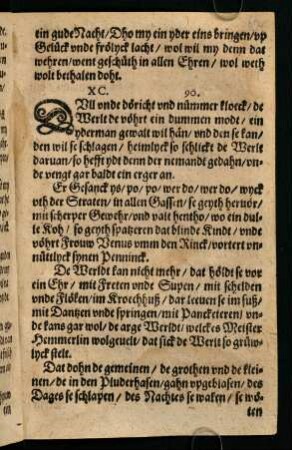 ein gude Nacht / Dho my ein yder eins bringen / vp
Gelück vnde frölyck lacht / wol wil my denn dat
wehren / went geschüth in allen Ehren / wol weth
wolt bethalen doht.
XC. 90.
DUll vnde döricht vnd nümmer kloeck / de
Werlt de vöhrt ein dummen mode / ein
yderman gewalt wil hän / vnd den se kan /
den wil se schlagen / heimlyck so schlickt de Werlt
daruan / so hefft ydt denn der nemandt gedahn / vn-
de vengt gar baldt ein erger an.
Er Gesanck ys / po / po / wer do / wer do / wyck
vth der Straten / in allen Gassen / se geyth heruör /
mit scherper Gewehr / vnd valt hentho / wo ein dul-
le Koh / so geyth spatzeren dat blinde Kindt / vnde
vöhrt Frouw Venus vmm den Rinck / vortert vn-
nüttlyck synen Penninck.
De Werldt kan nicht mehr / dat höldt se vor
ein Ehr / mit Freten vnde Supen / mit schelden
vnde Flöken / im Kroechhuß / dar leeuen se im suß /
mit Dantzen vnde springen / mit Pancketeren / vn-
de kans gar wol / de arge Werldt / welckes Meister
Hemmerlin wolgeuelt / dat sick de Werlt so grüw-
lyck stelt.
Dat dohn de gemeinen / de grothen vnd de klei-
nen / de in den Pluderhasen / gahn vpgeblasen / des
Dages se schlapen / des Nachtes se waken / se wö-
ten